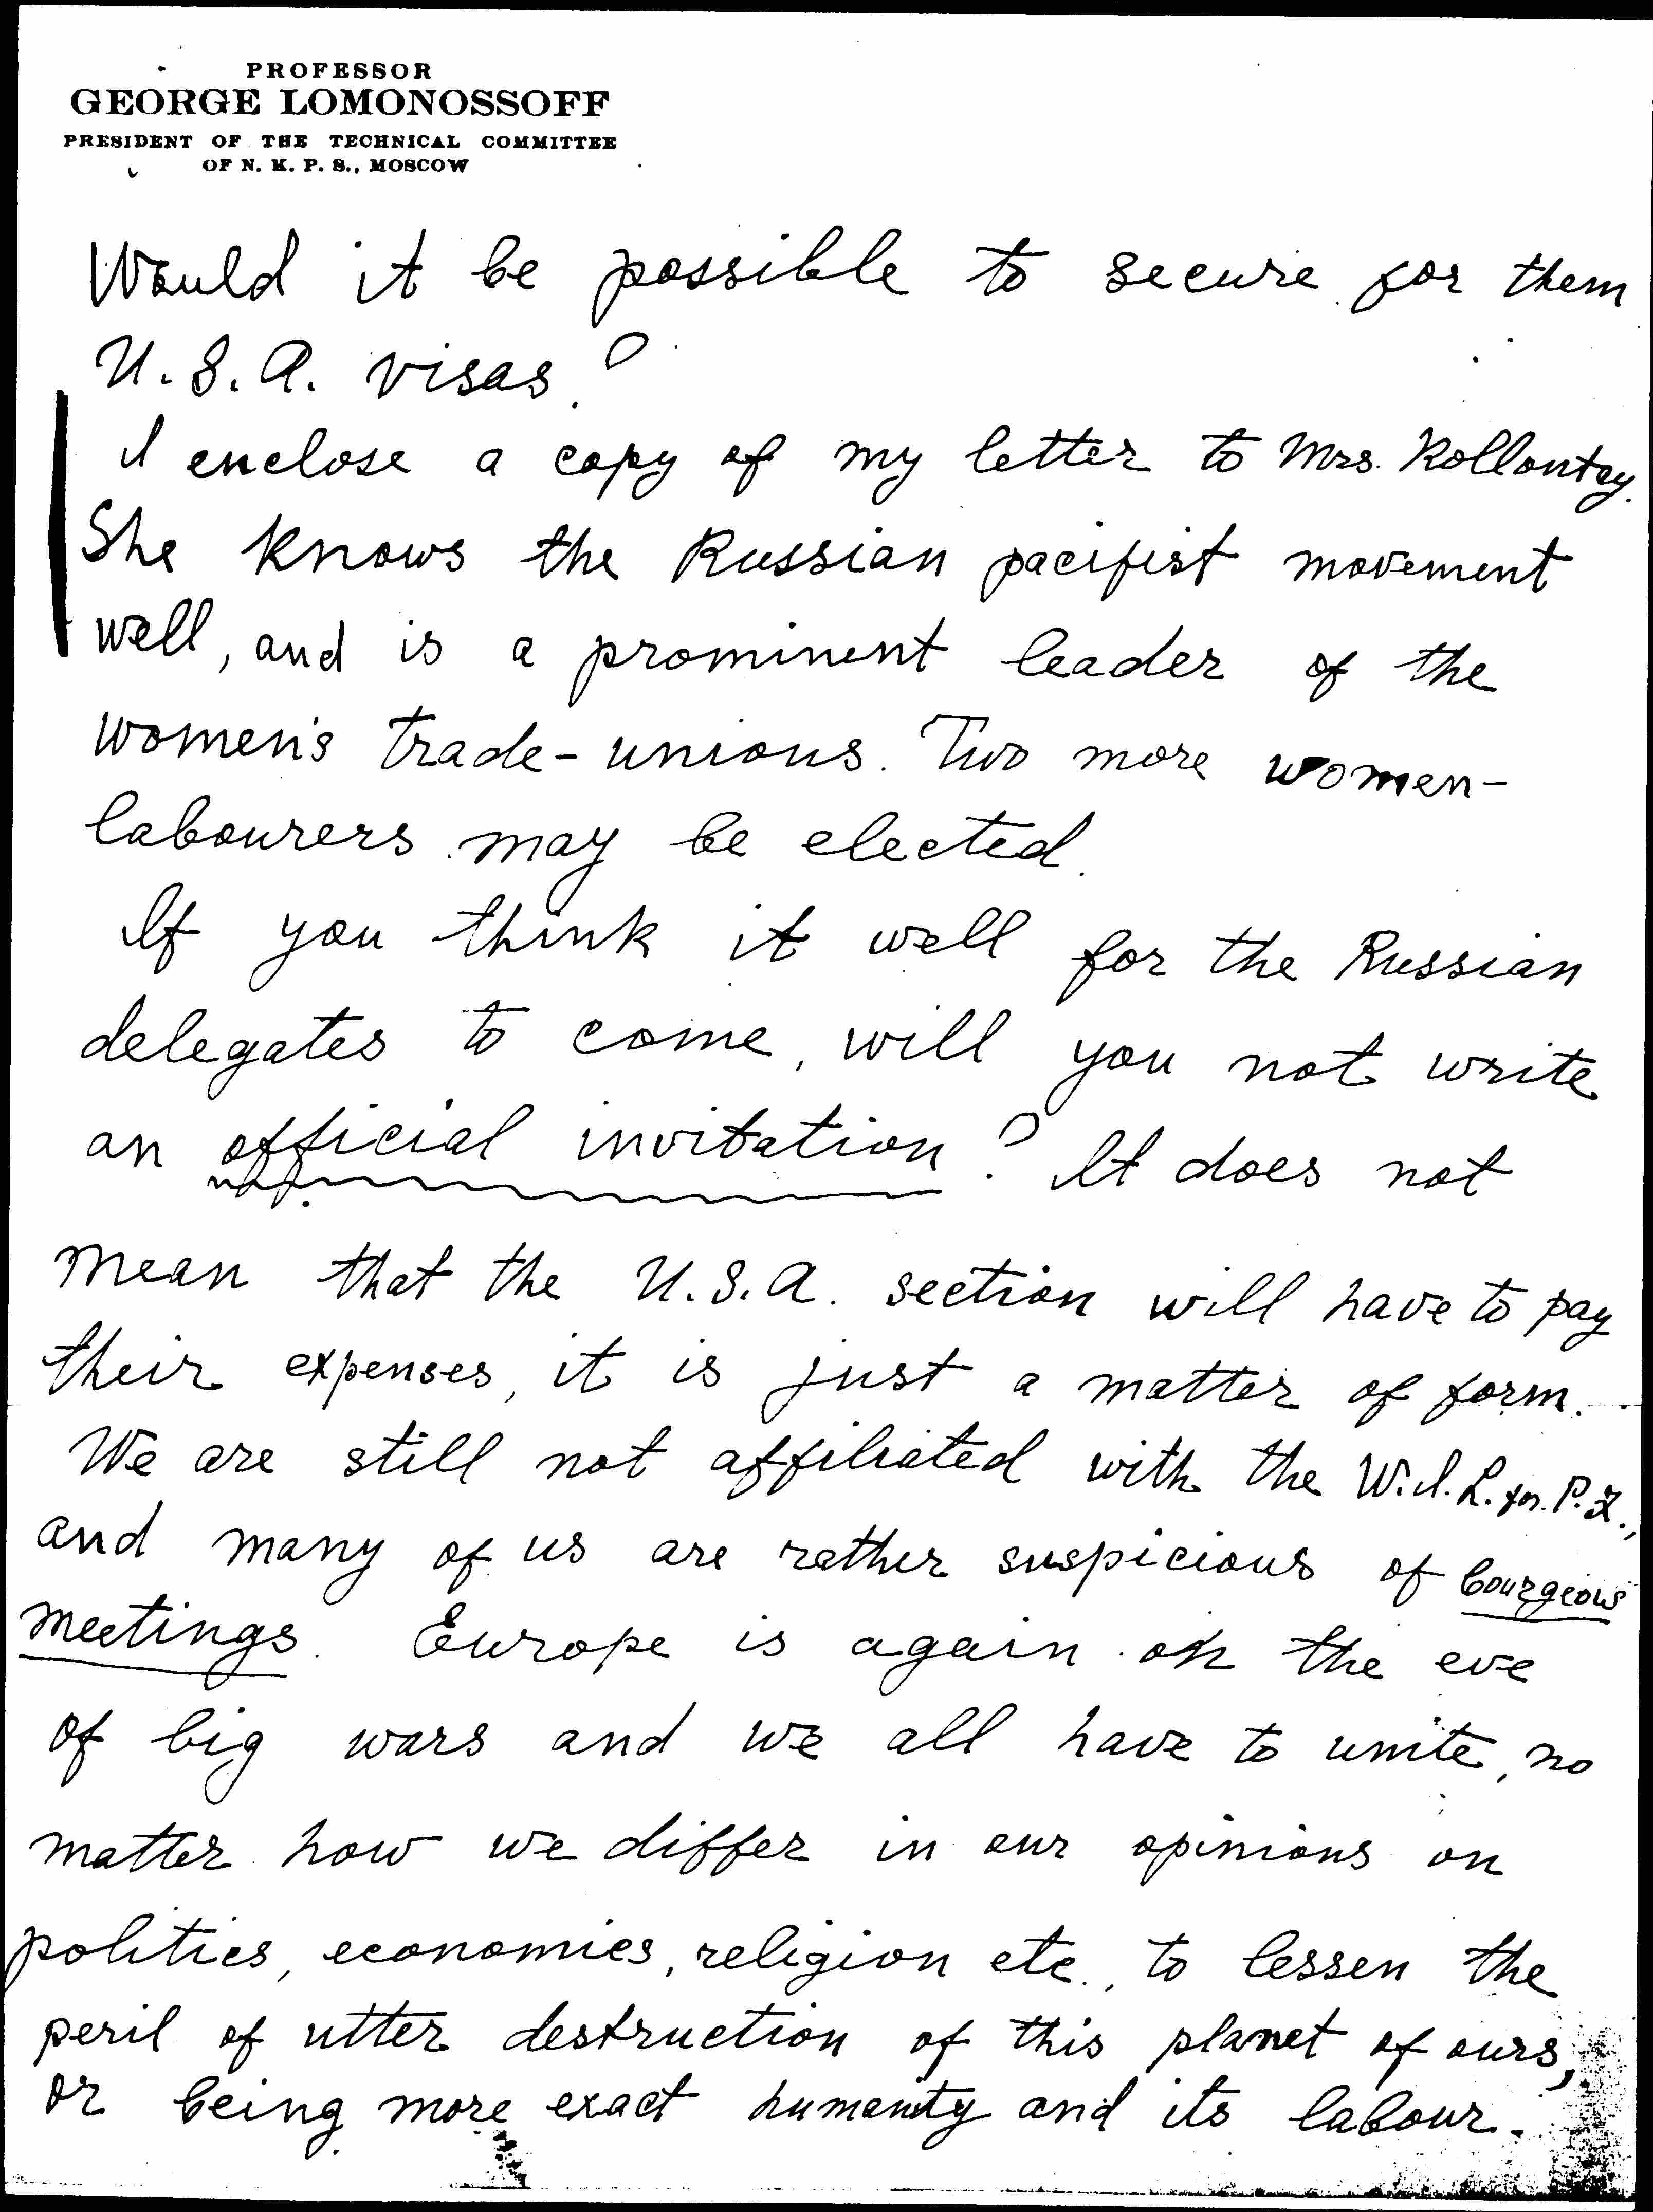 PROFESSOR
GEORGE LOMONOSSOFF
PRESIDENT OF THE TECHNICAL COMMITTEE
OF N. K. P. S., MOSCOW
Would it be possible to secure for them
U.S.A. visas?
I enclose a copy of my letter to Mrs. Kollontay.
She knows the Russian pacifist movement
well, and is a prominent leader of the
women's trade-unions. Two more women-
labourers may be elected.
If you think it well for the Russian
delegates to come, will you not write
an official invitation? It does not
mean that the U.S.A. section will have to pay
their expenses, it is just a matter of form.
We are still not affiliated with the W.I.L. for P.F.,
and many of us are rather suspicious of bourgeous
meetings. Europe is again on the eve
of big wars and we all have to unite, no
matter how we differ in our opinions on
politics, economies, religion etc., to lessen the
peril of utter destruction of this planet of ours,
or being more exact humanity and its labour.